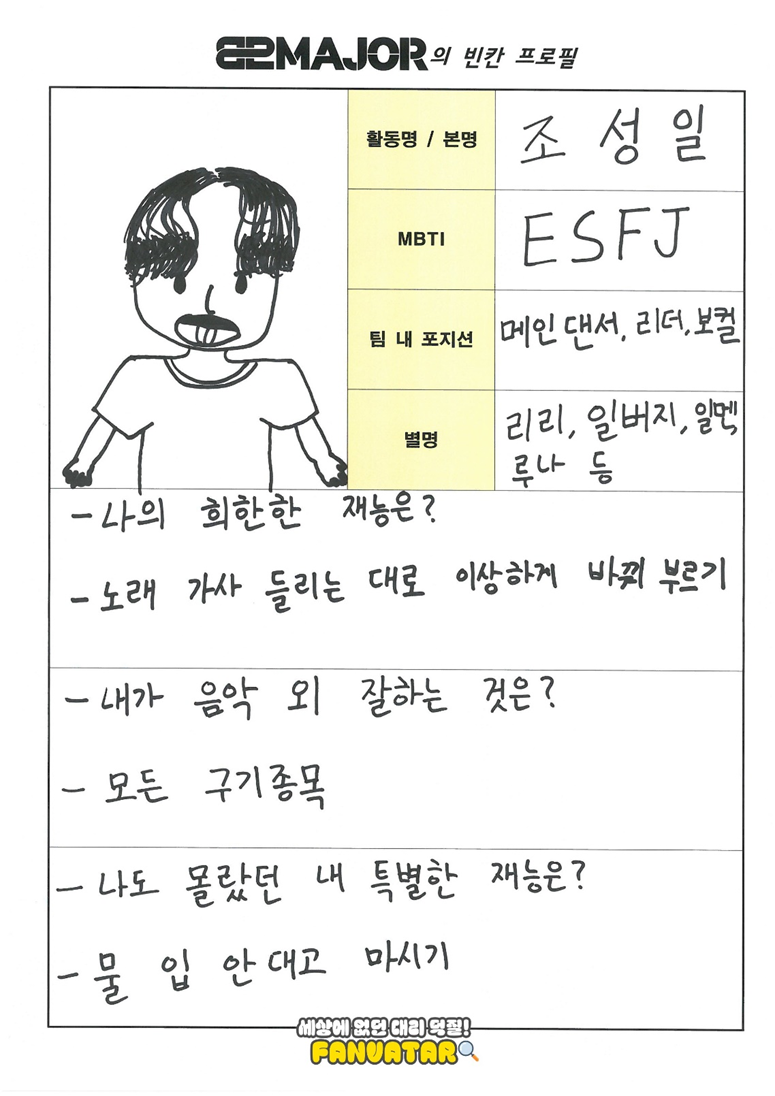 82MAJOR의 빈칸 프로필
활동명 / 본명
조성일
MBTI
ESFJ
팀 내 포지션
메인댄서, 리더, 보컬
별명
리리, 일버지, 일멕
루나 등
- 나의 희한한 재능은?
- 노래 가사 들리는 대로 이상하게 바꿔 부르기
- 내가 음악 외 잘하는 것은?
- 모든 구기종목
- 나도 몰랐던 내 특별한 재능은?
- 물 입 안대고 마시기
세상에 없던 대리 덕질!
FANVATAR